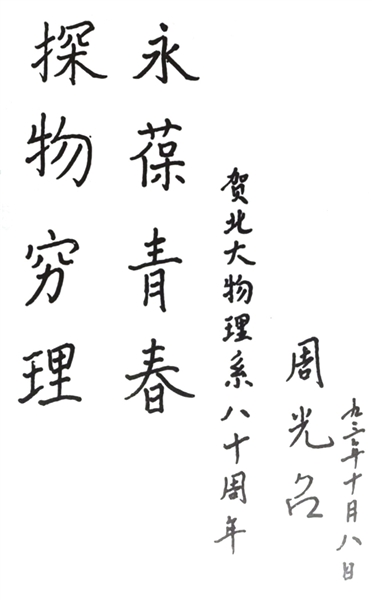 永葆青春
探物穷理
贺北大物理系八十周年
周光召
九三年十月八日